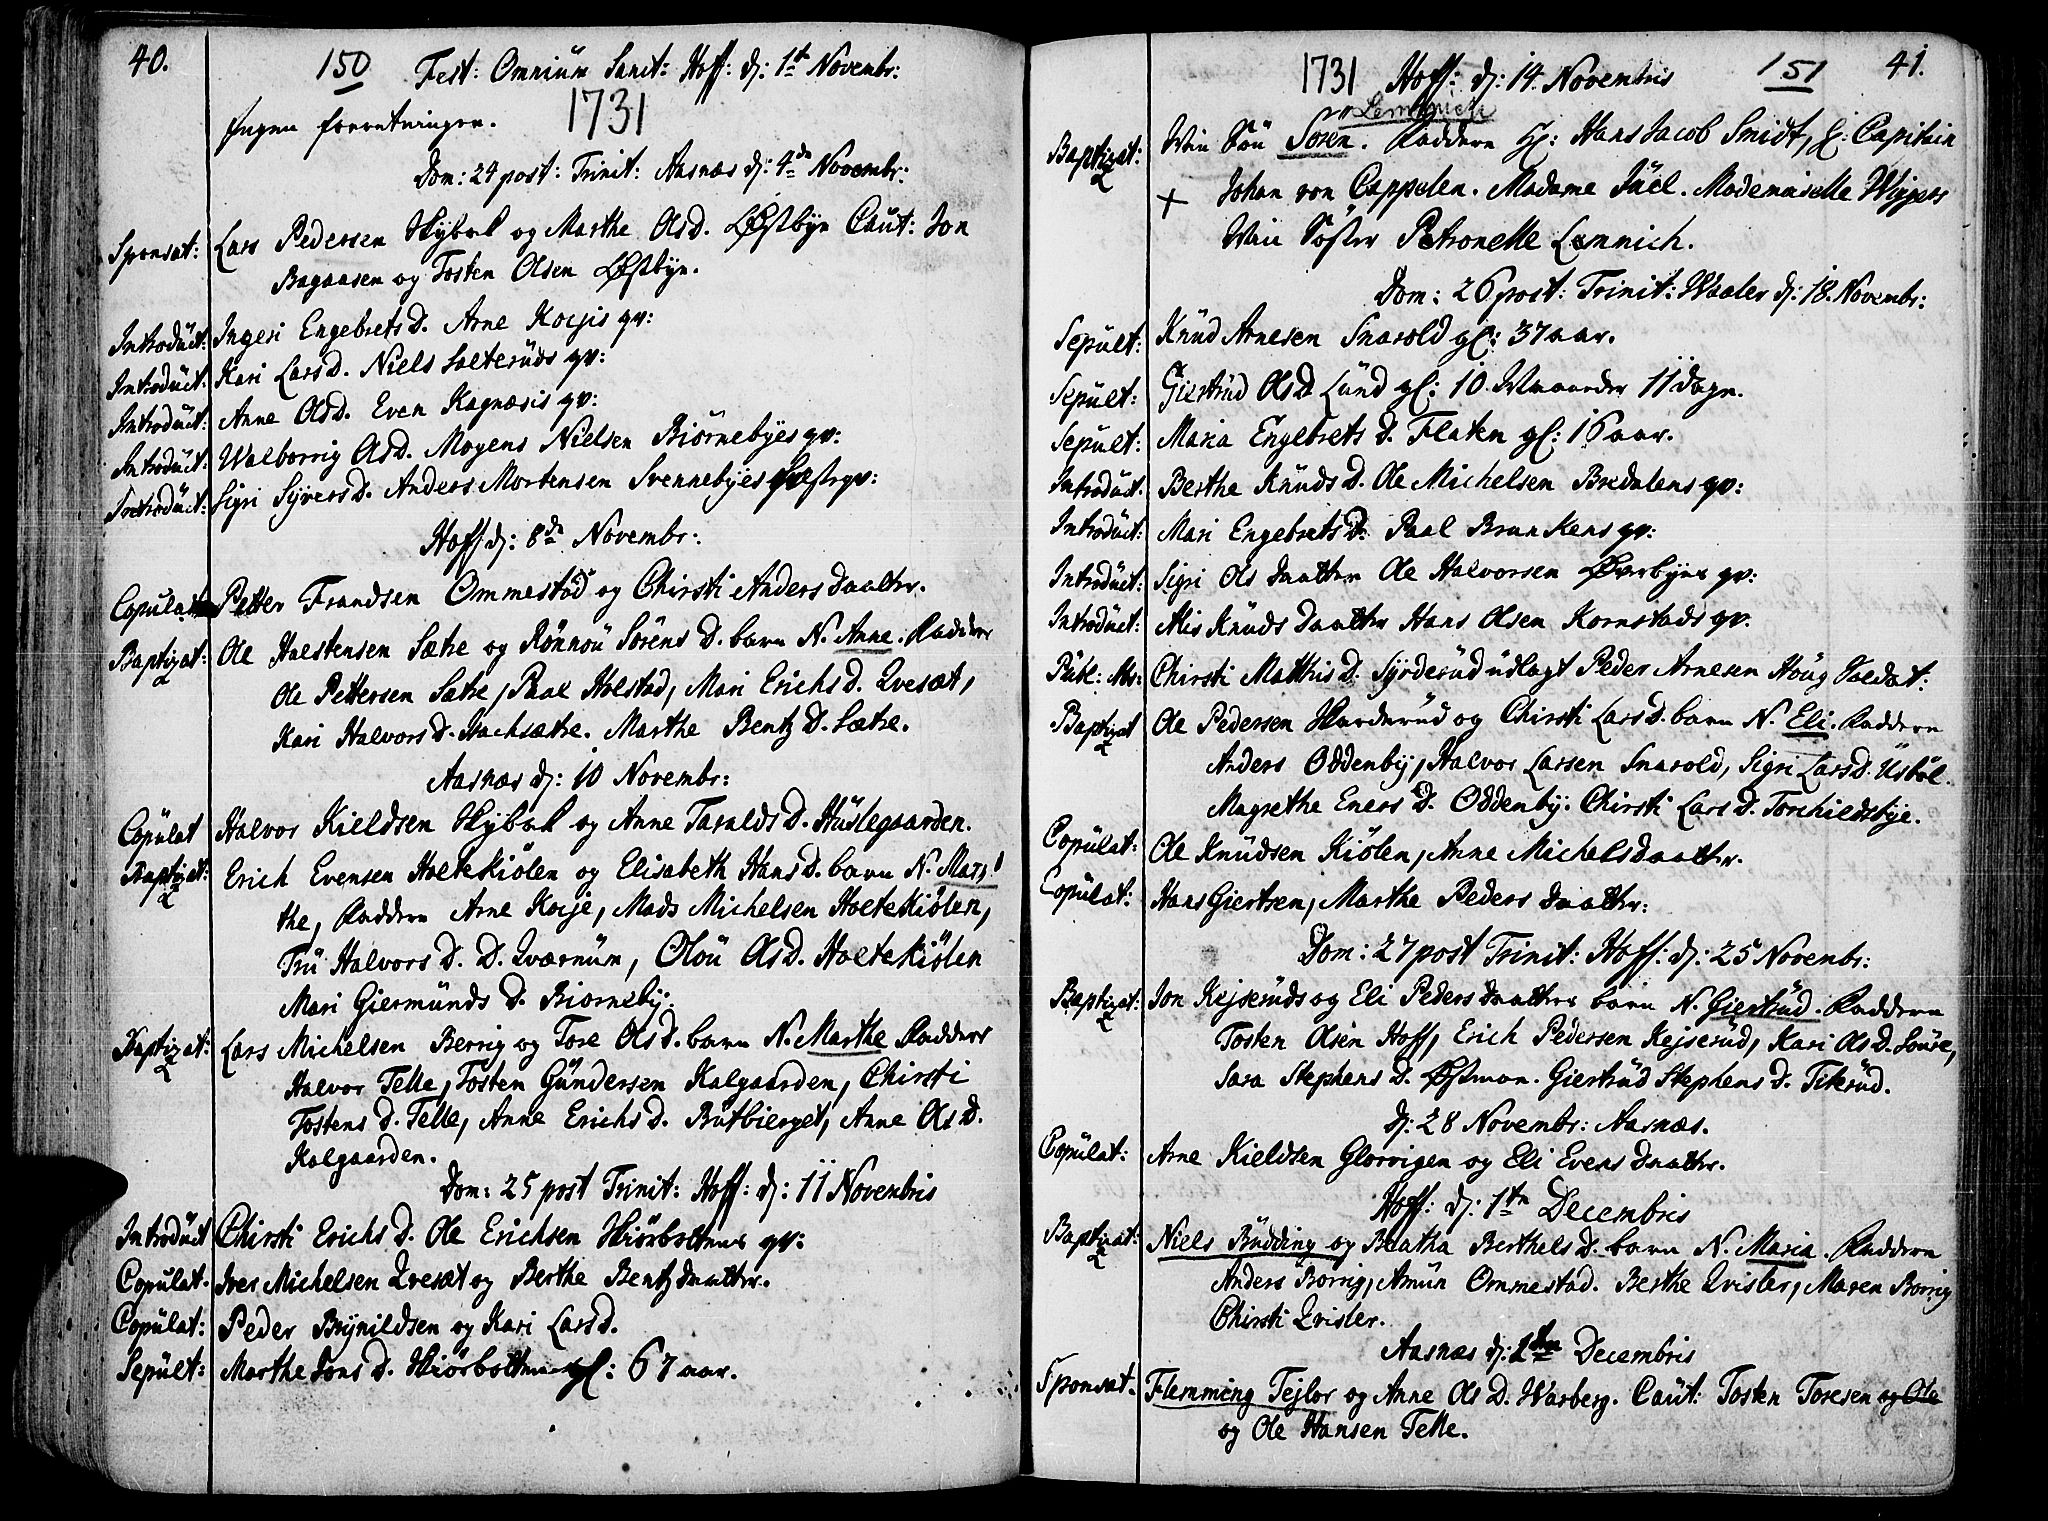 40.
150 Fest: Omnium Sanct: Hoff: dj: 1te Novembr:
Ingen forretninger. 1731
Dom: 24 post: Trinit: Aasnæs dj: 4de Novembr:
Sponsat: Lars Pedersen Skybak og Marthe Olsd. Østbye Caut: Jon
Bagaasen og Tosten Olsen Østbye.
Introduct: Ingeri Engebretsd. Arne Koejis qv:
Introduct: Kari Larsd. Niels Sætteruds qv:
Introduct: Anne Olsd. Even Kagnæsis qv:
Introduct: Walborrig Olsd. Mogens Nielsen Biørnebyes qv:
Introduct: Sigri Syversd. Anders Mortensen Svennebyes qv:
Hoff dj: 8de Novembr:
Copulat: Petter Frandsen Ommestad og Chirsti Anders daatter.
Baptizat: Ole Halstensen Sætre og Rønnou Sørens D. barn N. Anne. Faddere
Ole Pettersen Sætre, Paal Holstad, Mari Erichs D. Qvesæt,
Kari Halvors D. Hachsætre. Marthe Bentz D. Sætre.
Aasnæs dj: 10 Novembr:
Copulat Halvor Kieldsen Skybak og Anne Taralds D. Huslegaarden.
Baptizat: Erich Evensen Holtekiølen og Elisabeth Hans D. barn N. Mar-
the, Faddere Arne Koeje, Mads Michelsen Holtekiølen,
Tru Halvors D. D. Qværnum, Olou Ols D. Holtekiølen
Mari Giermunds D. Biorneby.
Baptizat: Lars Michelsen Berrig og Tore Ols D. barn N. Marthe Faddere
Halvor Telle, Tosten Gundersen Kalgaarden, Chirsti
Tostens D. Telle, Anne Erichs D. Butbierget, Anne Ols D.
Kalgaarden.
Dom: 25 post Trinit: Hoff: dj: 11 Novembris
Introduct Chirsti Erichs D. Ole Erichsen Skiørbottens qv:
Copulat. Iver Michelsen Qvesæt og Berthe Bentz daatter.
Copulat: Peder Brynildsen og Kari Larsd.
Sepult: Marthe Jons D. Skiørbotten gl: 67 aar.
1731 Hoff: dj: 14. Novembris 151 41.
Lemmich
Baptizat: Min Søn Søren. Faddere Hr: Hans Jacob Smidt, Hr: Capitain
+ Johan von Cappelen. Madame Juel. Mademoiselle Wiggers
Min Søster Petronelle Lemmich.
Dom: 26 post: Trinit: Waaler dj: 18. Novembr:
Sepult: Knud Arnesen Snarold gl: 37 aar.
Sepult: Giertrud Ols D. Lund gl: 10. Maaneder 11 dage.
Sepult: Maria Engebrets D. Flaten gl: 16 aar.
Introduct: Berthe Knuds D. Ole Michelsen Bredalens qv:
Introduct: Mari Engebrets D. Paal Brunkens qv:
Introduct: Sigri Ols daatter Ole Halvorsen Øverbyes qv:
Introduct: Alis Knuds daatter Hans Olsen Kornstads qv.
Publ: Abs: Chirsti Matthis D. Syrderud udlagt Peder Arnesen Houg Soldat.
Baptizat Ole Pedersen Skarderud og Chirsti Lars D. barn N. Eli. Faddere
Anders Oddenby, Halvor Larsen Snarold, Sigri Lars D. Usbøl.
Magrethe Eners D. Oddenby. Chirsti Lars D. Torchildsbye.
Copulat: Ole Knudsen Kiølen, Anne Michels daatter.
Copulat: Hans Giertsen, Marthe Peders daatter:
Dom: 27 post Trinit: Hoff: dj: 25 Novembr:
Baptizat: Jon Kejseruds og Eli Peders daatters barn N. Giertrud. Faddere
Tosten Olsen Hoff, Erich Pedersen Kejserud, Kari Ols D. Loure,
Sara Stephens D. Østmoe. Giertrud Stephens D. Titerud.
dj: 28 Novembr: Aasnæs.
Copulat: Arne Kieldsen Glorvigen og Eli Evens daatter.
Hoff: dj: 1te Decembris
Baptizat: Niels Budding og Beatha Berthels D. barn N. Maria. Faddere
Anders Borrig, Amun Ommestad. Berthe Qvisler, Maren Borrig
Chirsti Qvisler.
Aasnæs dj: Decembris
Sponsat. Flemming Tejlor og Anne Ols D. Warberg. Caut: Tosten Toresen og Ole
og Ole Hansen Telle.